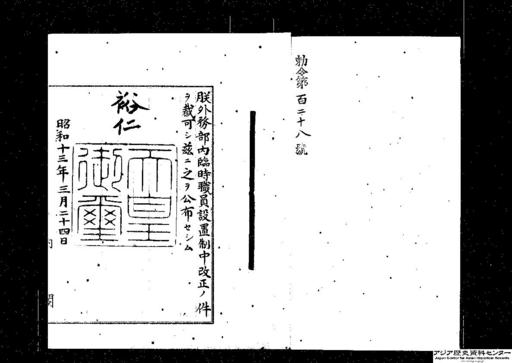 勅令第百二十八號
朕外務部内臨時職員設置制中改正ノ件
ヲ裁可シ茲ニ之ヲ公布セシム
裕仁
天皇御璽
昭和十三年三月二十四日
内閣
アジア歴史資料センター
Japan Center for Asian Historical Records